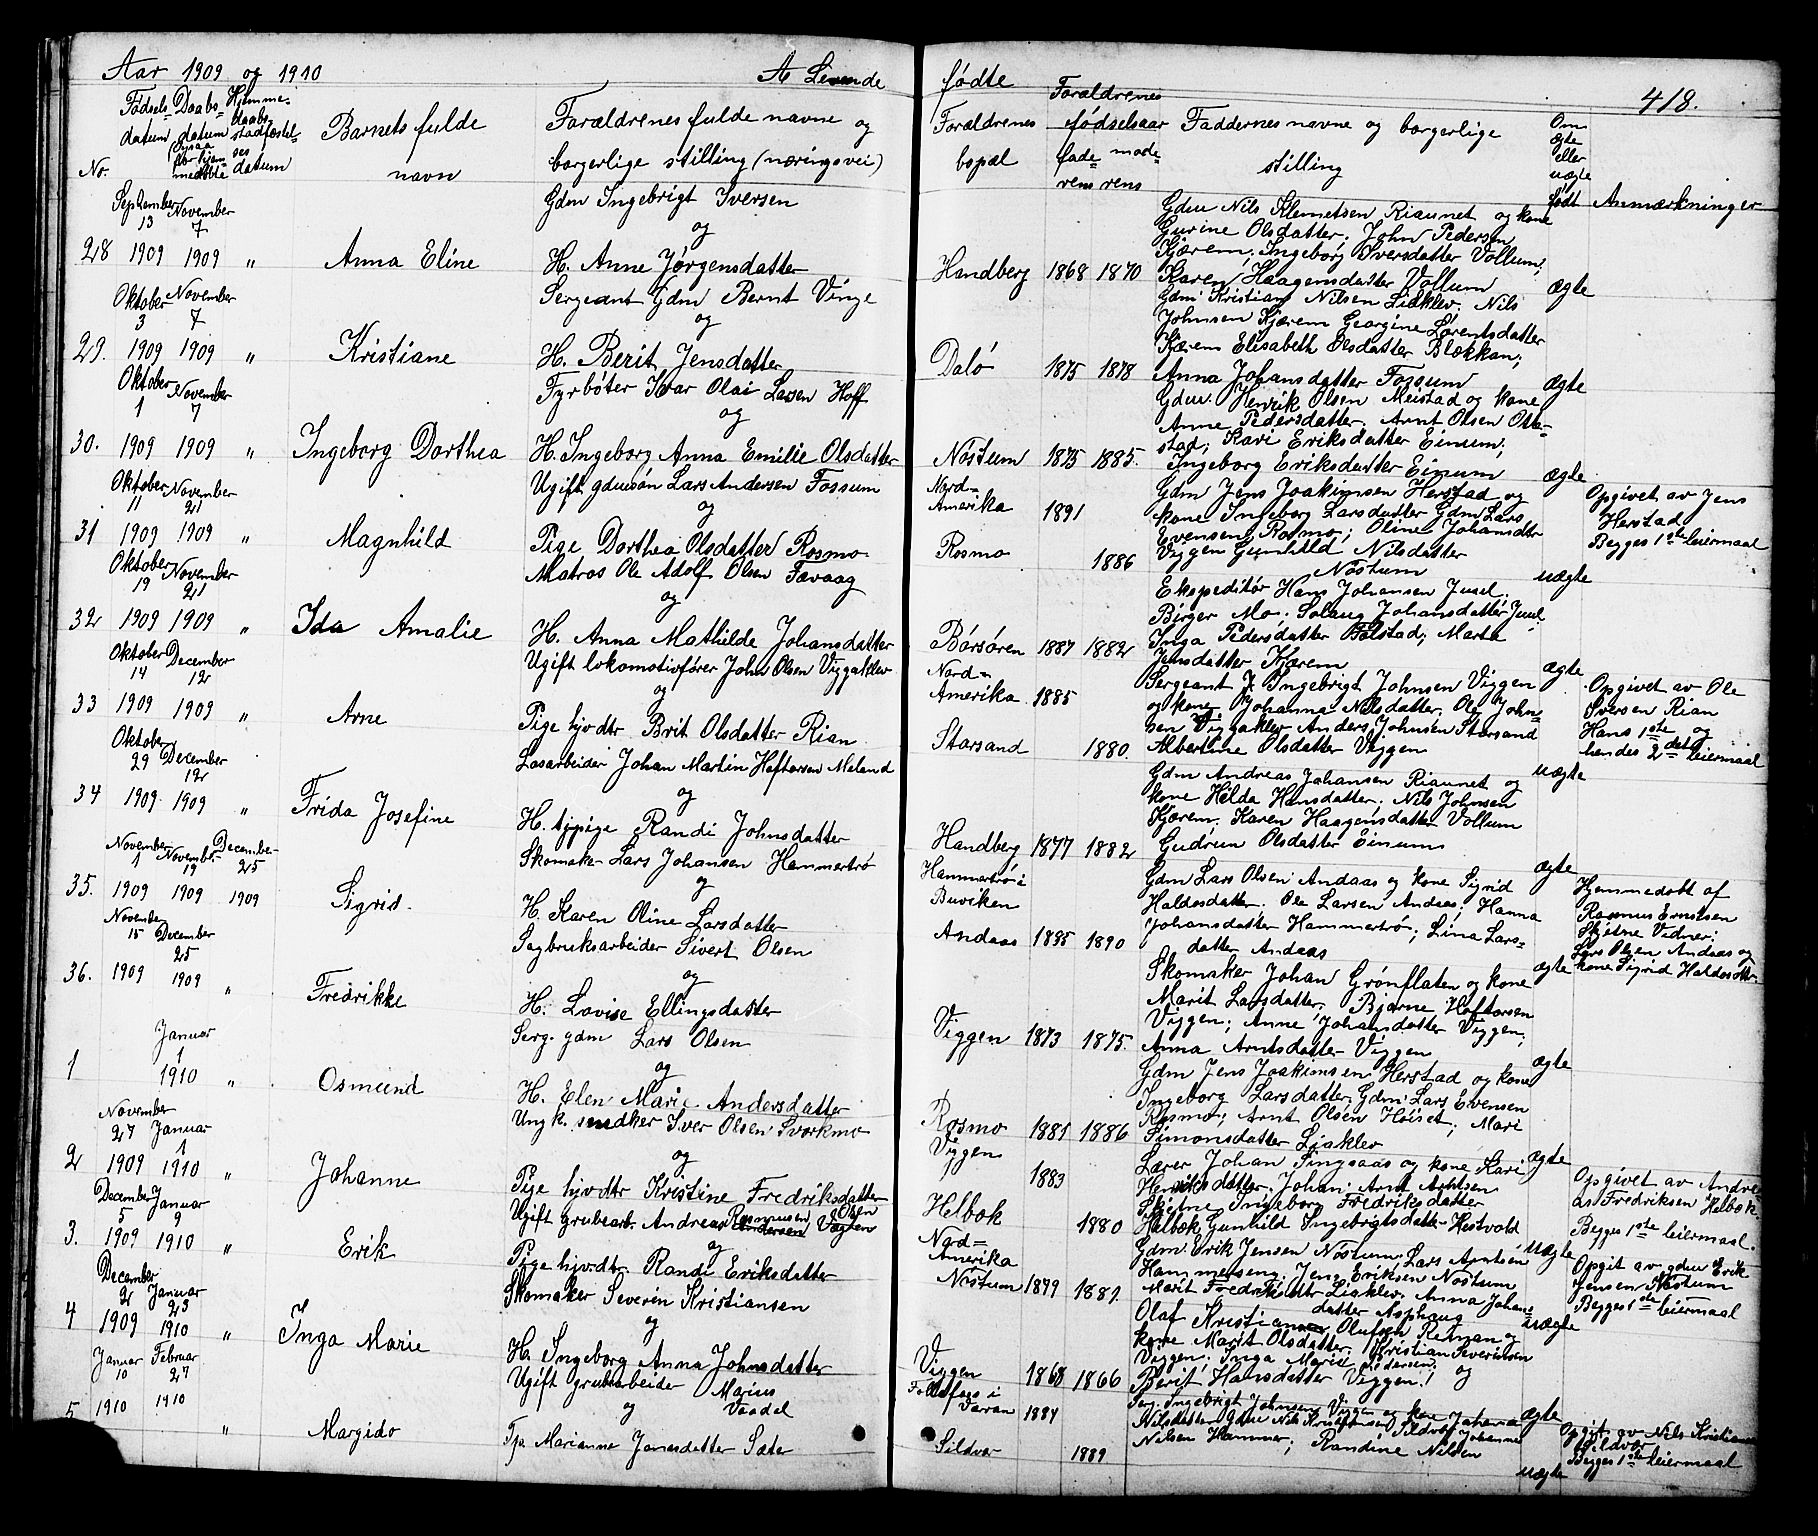 Aar 1909 og 1910
A Levende
fødte
418.
No.
Fødsels-
datum
Daabs-
datum
Hjemme-
daabs
stadfæstel-
ses
datum
Barnets fulde
navn
Forældrenes fulde navne og
borgerlige stilling (næringsvei)
Forældrenes
bopæl
Forældrenes
fødselsaar
fade-
rens
mode-
rens
Faddernes navne og borgerlige
stilling
Om
ægte
eller
uægte
født
Anmærkninger
28
September
13
1909
November
7
1909
"
Anna Eline
Gdm Ingebrigt Iversen
og
H. Anne Jørgensdatter
Handberg
1868
1870
Gdm Nils Klemetsen Riaunet og kone
Gurine Olsdatter; John Pedersen
Kjærem; Ingeborg Iversdatter Vollum;
Karen Haagensdatter Vollum
ægte
29.
Oktober
3
1909
November
7
1909
"
Kristiane
Sergeant Gdm Bernt Vinge
og
H. Berit Jensdatter
Dalø
1875
1878
Gdm Kristian Nilsen Liaklev. Nils
Johnsen Kjærem Georgine Lorentsdatter
Kjærem Elisabeth Olsdatter Blekkan;
Anna Johansdatter Fossum
ægte
30.
Oktober
1
1909
November
7
1909
"
Ingeborg Dorthea
Fyrbøter Ivar Olai Larsen Hoff
og
H. Ingeborg Anna Emilie Olsdatter
Nøstum
1875
1885.
Gdm. Henrik Olsen Meistad og kone
Anne Pedersdatter. Arnt Olsen Otte-
stad; Kari Eriksdatter Einum;
Ingeborg Eriksdatter Einum
ægte
31
Oktober
11
1909
November
21
1909
"
Magnhild
Ugift gdmsøn Lars Andersen Fossum
og
Pige Dorthea Olsdatter Rosmo
Nord-
Amerika
Rosmo
1891
1886
Gdm Jens Joakimsen Herstad og
kone Ingeborg Larsdatter Gdm Lars
Evensen Rosmo; Oline Johansdtr
Viggen Gunhild Nilsdatter
Nøstum
uægte
Opgivet av Jens
Herstad
Begges 1ste leiermaal
32
Oktober
19
1909
November
21
1909
"
Ida Amalie
Matros Ole Adolf Olsen Fævaag
og
H. Anna Mathilde Johansdatter
Børsøren
1887
1882
Ekspeditør Hans Johansen Juul;
Birger Mo; Solaug Johansdatter Juul
Inga Pedersdatter Bolstad; Marta
Jensdatter Kjærem
ægte
33
Oktober
14
1909
December
12
1909
"
Arne
Ugift lokomotivfører John Olsen Viggaklev
og
Pige hjv dtr Brit Olsdatter Rian
Nord-
Amerika
Storsand
1885
1880.
Sergeant J. Ingebrigt Johnsen Viggen
og kone Johanna Nilsdatter, Ole John-
sen Viggaklev Anders Johnsen Storsand
Albertine Olsdatter Viggen
uægte
Opgivet av Ole
Iversen Rian
Hans 1ste og
hendes 2det leiermaal
34
Oktober
29
1909
December
12
1909
"
Frida Josefine
Løsarbeider Johan Martin Haftorsen Meland
og
H. tjpige Randi Johnsdatter
Handberg
1877
1882
Gdm Andreas Johansen Riaunet og
kone Hilda Hansdatter; Nils Johnsen
Kjærem. Karen Haagensdatter Vollum
Gudrun Olsdatter Einum
ægte
35.
November
1
1909
November
19
1909
December
25
1909
Sigrid
Skomaker Lars Johansen Hammertrø
og
H. Karen Oline Larsdatter
Hammertrø i
Buviken
Andaas
1885
1890
Gdm Lars Olsen Andaas og kone Sigrid
Haldosdatter. Ole Larsen Andaas; Hanna
Johansdatter Hammertrø; Lina Lars-
datter Andaas
ægte
Hjemmedøbt af
Rasmus Ernstsen
Skjetne Vidner:
Lars Olsen Andaas og
kone Sigrid Haldosdtr.
36.
November
15
1909
December
25
1909
"
Fredrikke
Sagbruksarbeider Sivert Olsen
og
H. Lovise Ellingsdatter
Viggen
1873
1875.
Skomaker Johan Grønflaten og kone
Marit Larsdatter; Bjarne Haftorsen
Viggen; Anne Johansdatter Viggen;
Anna Arntsdatter Viggen
ægte
1
Januar
1
1910
"
Osmund
Serg. gdm Lars Olsen
og
H. Elen Marie Andersdatter
Rosmo
1881
1886
Gdm Jens Joakimsen Herstad og kone
Ingeborg Larsdatter; Gdm: Lars Evensen
Rosmo; Arnt Olsen Høiset; Mari
Simonsdatter Liaklev
ægte
2
November
27
1909
Januar
1
1910
"
Johanne
Ungk. snedker Iver Olsen Svorkmo
og
Pige hjv dtr Kristine Fredriksdatter
Viggen
Helbok
1883
1880
Lærer Johan Singsaas og kone Kari
Henriksdatter; Johan Arnt Arntsen
Skjetne Ingeborg Fredriksdatter
Helbok, Gunhild Ingebrigtsdatter Hestvold
uægte
Opgivet av Andre-
as Fredriksen Helbok.
Begges 1ste leiermaal.
3.
December
5
1909
Januar
9
1910
"
Erik
Ugift grubearb. Andreas Rasmusen Olsen
Andersen Viggen
og
Pige hjv dtr. Randi Eriksdatter
Nord-
Amerika
Nøstum
1879
1881.
Gdm. Erik Jensen Nøstum. Lars Arntsen
Hammereng, Jens Eriksen Nøstum
Marit Fredriksdatter Liaklev. Anna Johans-
datter Asphaug
uægte
Opgit av gdm Erik
Jensen Nøstum
Begges 1ste leiermaal
4
December
2
1909
Januar
23
1910
"
Inga Marie
Skomaker Severin Kristiansen
og
H. Ingeborg Anna Johnsdatter
Viggen
1868
1866
Olaf Kristian Olufsen Reitan og
kone Marit Olsdatter. Kristian Severinsen
Viggen; Inga Marie Pedersen; og
Berit Hansdatter Viggen.
ægte
5
Januar
10
1910
Februar
27
1910
"
Margido
Ugift grubearbeider Marius
og Vaadal
Tp. Marianne Jonasdatter Sæter
i
Væran
Sildvær
1884
1889
Serg. Ingebrigt Johnsen Viggen og kone Johanna
Nilsdatter, Gdm Nils Kristiansen Sildvær Johanne
Nilsen Hammer; Randine Nilsen
uægte
Opgit av Nils Kristiansen
Sildvær
Begges 1ste leiermaal